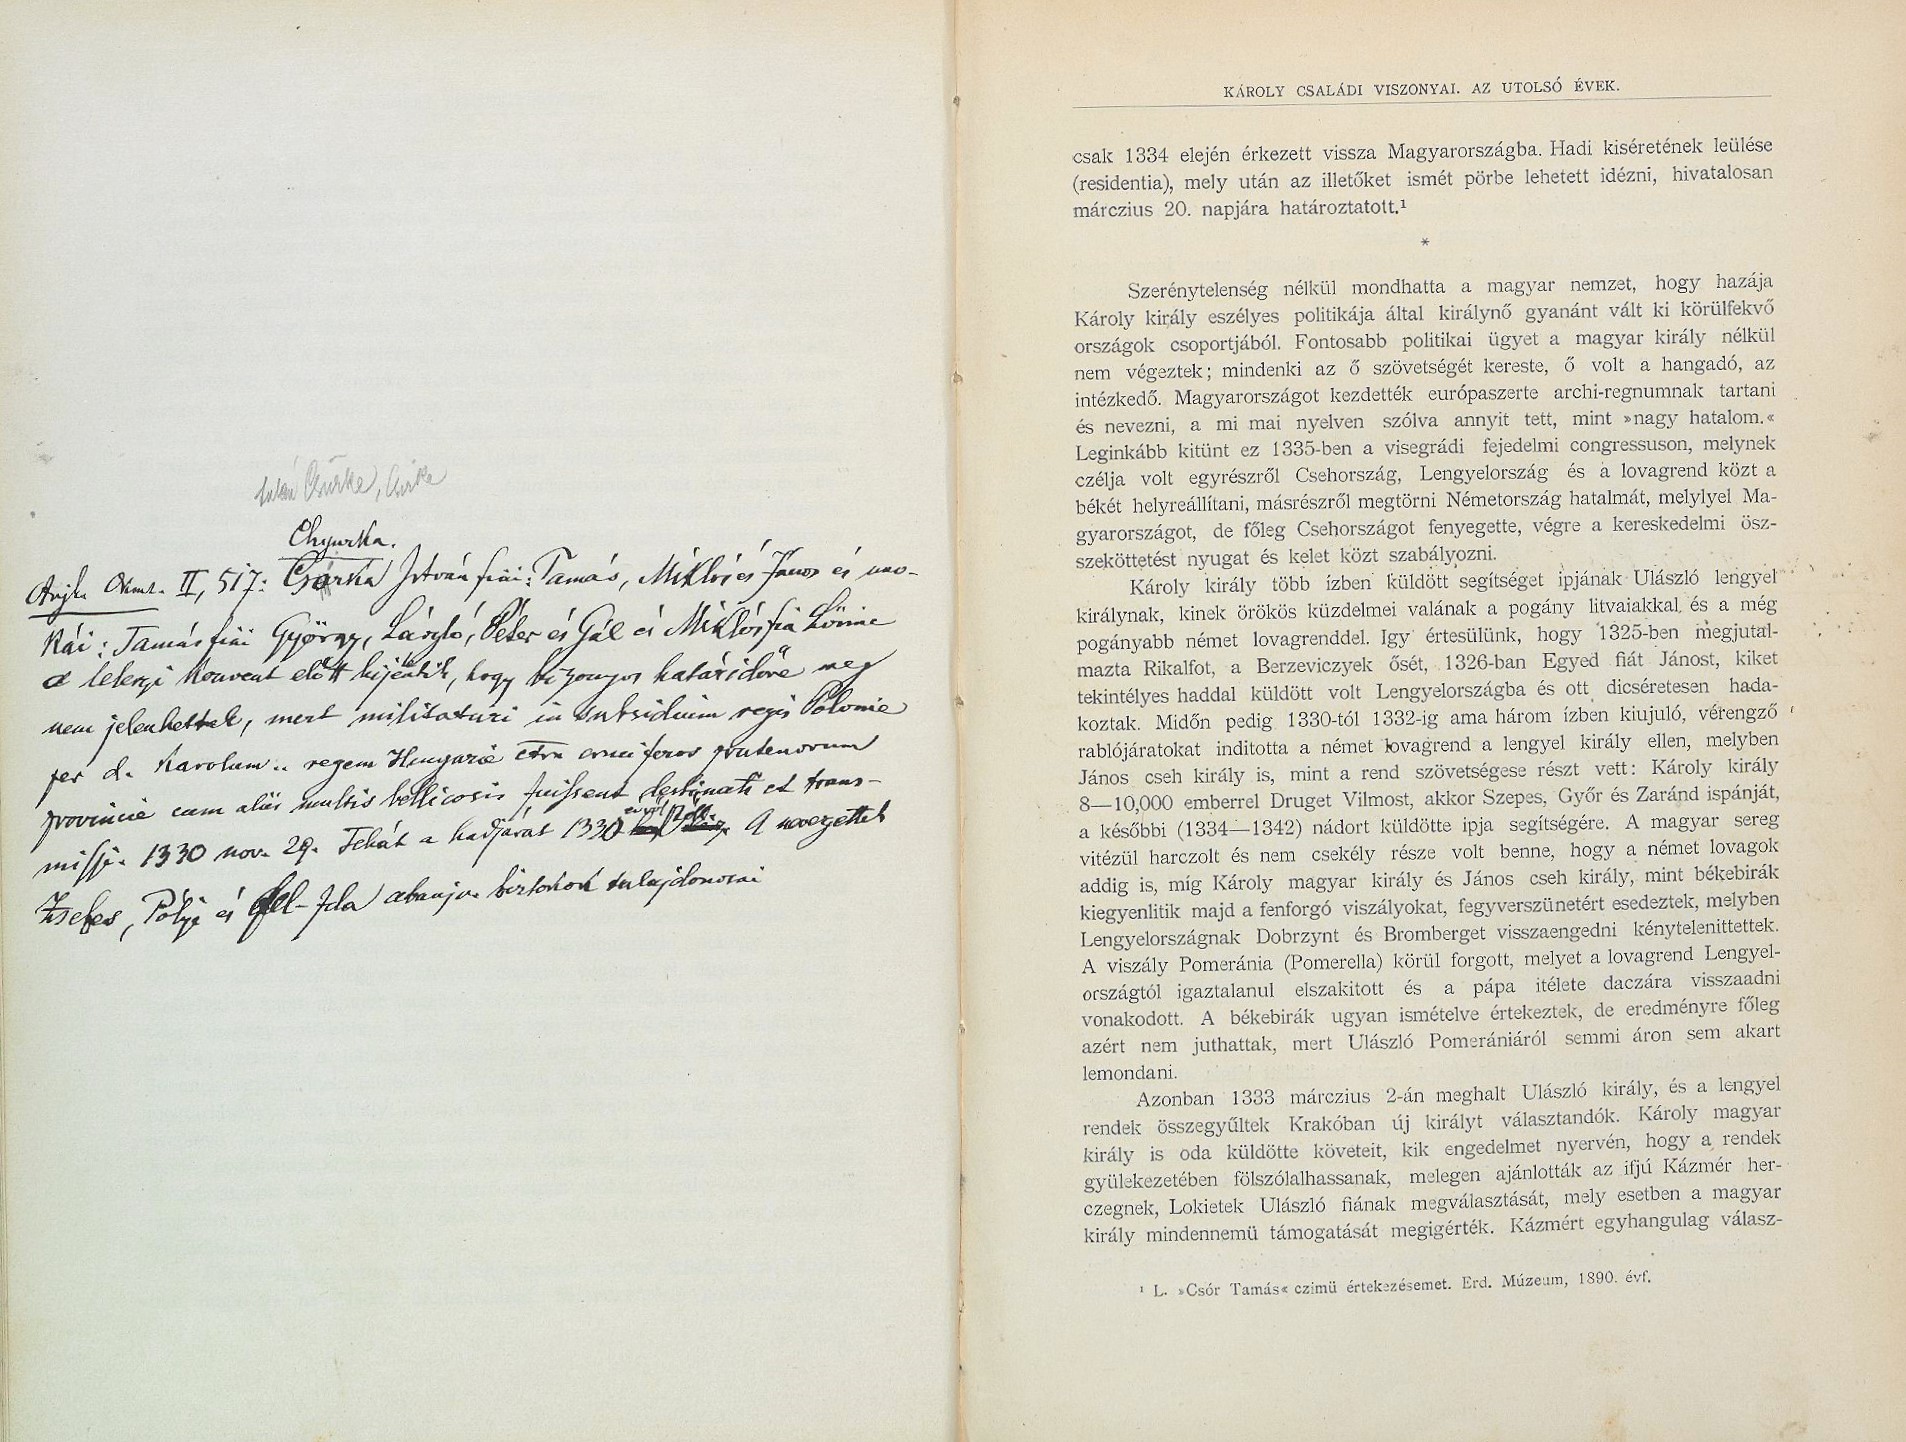 Csurke, Csirke
Chyurka.
Anjk. Okmt. II, 517: Csurka István fiai: Tamás, Miklós és János és uno-
kái: Tamás fiai György, László, Péter és Gál és Miklós fia Lőrinc
a leleszi konvent előtt kijentik, hogy bizonyos határidőre meg
nem jelenhettek, mert militaturi in subsidium regis Polonie
per d. Karolum .. regem Hungarie contra cruciferos prutenorum
provincie cum aliis multis bellicosis fuissent destinati et trans-
missi. 1330 nov. 29. Tehát a hadjárat 1330 A nevezettek
Zsebes, Pólyi és Fel-Ida abauji birtokok tulajdonosai
KÁROLY CSALÁDI VISZONYAI. AZ UTOLSÓ ÉVEK.
csak 1334 elején érkezett vissza Magyarországba. Hadi kiséretének leülése
(residentia), mely után az illetőket ismét pörbe lehetett idézni, hivatalosan
márczius 20. napjára határoztatott.¹
*
Szerénytelenség nélkül mondhatta a magyar nemzet, hogy hazája
Károly király eszélyes politikája által királynő gyanánt vált ki körülfekvő
országok csoportjából. Fontosabb politikai ügyet a magyar király nélkül
nem végeztek; mindenki az ő szövetségét kereste, ő volt a hangadó, az
intézkedő. Magyarországot kezdették európaszerte archi-regnumnak tartani
és nevezni, a mi mai nyelven szólva annyit tett, mint »nagy hatalom.«
Leginkább kitünt ez 1335-ben a visegrádi fejedelmi congressuson, melynek
czélja volt egyrészről Csehország, Lengyelország és a lovagrend közt a
békét helyreállítani, másrészről megtörni Németország hatalmát, melylyel Ma-
gyarországot, de főleg Csehországot fenyegette, végre a kereskedelmi ösz-
szeköttetést nyugat és kelet közt szabályozni.
Károly király több ízben küldött segítséget ipjának Ulászló lengyel
királynak, kinek örökös küzdelmei valának a pogány litvaiakkal és a még
pogányabb német lovagrenddel. Igy értesülünk, hogy 1325-ben megjutal-
mazta Rikalfot, a Berzeviczyek ősét, 1326-ban Egyed fiát Jánost, kiket
tekintélyes haddal küldött volt Lengyelországba és ott dicséretesen hada-
koztak. Midőn pedig 1330-tól 1332-ig ama három ízben kiujuló, vérengző
rablójáratokat inditotta a német lovagrend a lengyel király ellen, melyben
János cseh király is, mint a rend szövetségese részt vett: Károly király
8—10,000 emberrel Druget Vilmost, akkor Szepes, Győr és Zaránd ispánját,
a későbbi (1334—1342) nádort küldötte ipja segítségére. A magyar sereg
vitézül harczolt és nem csekély része volt benne, hogy a német lovagok
addig is, míg Károly magyar király és János cseh király, mint békebirák
kiegyenlitik majd a fenforgó viszályokat, fegyverszünetért esedeztek, melyben
Lengyelországnak Dobrzynt és Bromberget visszaengedni kénytelenittettek.
A viszály Pomeránia (Pomerella) körül forgott, melyet a lovagrend Lengyel-
országtól igaztalanul elszakitott és a pápa itélete daczára visszaadni
vonakodott. A békebirák ugyan ismételve értekeztek, de eredményre főleg
azért nem juthattak, mert Ulászló Pomerániáról semmi áron sem akart
lemondani.
Azonban 1333 márczius 2-án meghalt Ulászló király, és a lengyel
rendek összegyűltek Krakóban új királyt választandók. Károly magyar
király is oda küldötte követeit, kik engedelmet nyervén, hogy a rendek
gyülekezetében fölszólalhassanak, melegen ajánlották az ifjú Kázmér her-
czegnek, Lokietek Ulászló fiának megválasztását, mely esetben a magyar
király mindennemü támogatását megigérték. Kázmért egyhangulag válasz-
¹ L. »Csór Tamás« czimü értekezésemet. Erd. Múzeum, 1890. évf.